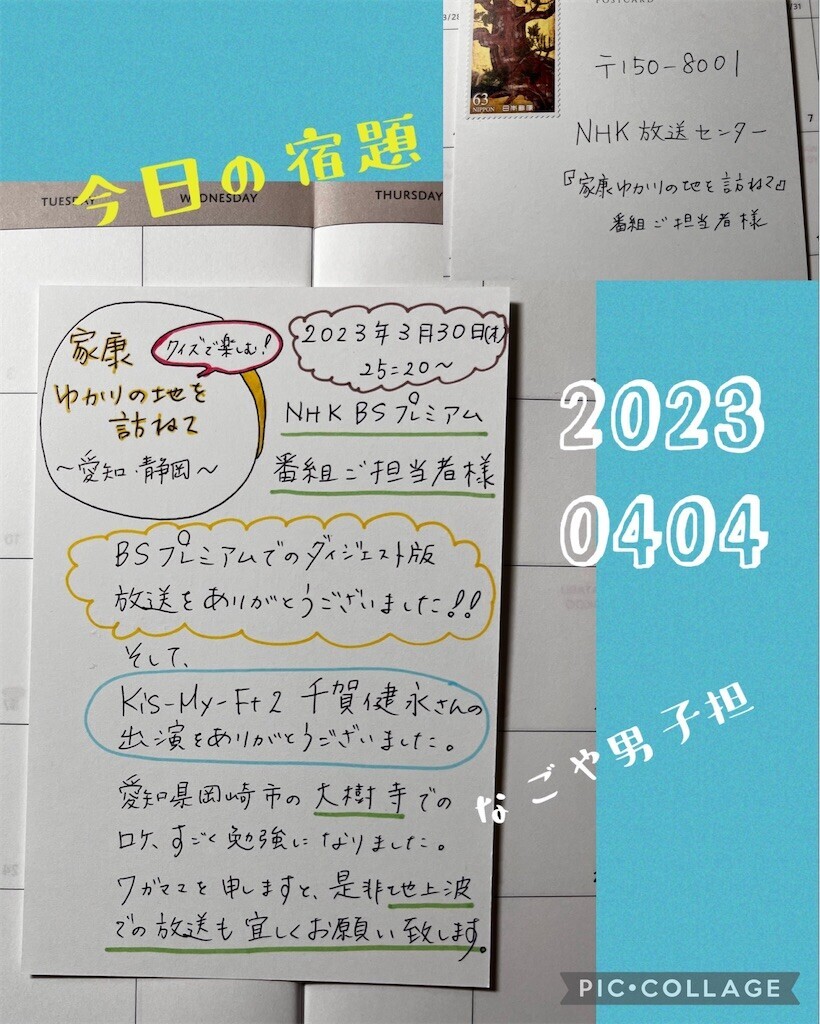 3/28
3/31
POSTCARD
63
NIPPON
日本郵便
〒150-8001
NHK 放送センター
『家康ゆかりの地を訪ねて』
番組ご担当者様
7
今日の宿題
TUESDAY
WEDNESDAY
THURSDAY
家康
ゆかりの地を
訪ねて
〜愛知・静岡〜
クイズで楽しむ!
2023年3月30日(木)
25:20〜
NHK BSプレミアム
番組ご担当者様
2023
0404
BSプレミアムでのダイジェスト版
放送をありがとうございました!!
そして、
Kis-My-Ft2 千賀健永さんの
出演をありがとうございました。
なごや男子担
愛知県岡崎市の大樹寺での
ロケ、すごく勉強になりました。
ワガママを申しますと、是非地上波
での放送も宜しくお願い致します。
PIC•COLLAGE